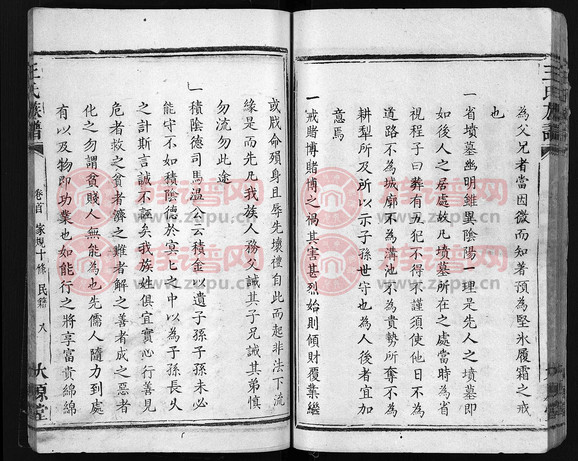 王氏族譜
為父兄者當因微而知著預為堅氷履霜之戒
也
一省墳墓幽明雖異陰陽一理是先人之墳墓即
如後人之居處故凡墳墓所在之處當時為省
視程子曰葬有五犯不得不謹須使他日不為
道路不為城廓不為溝池不為貴勢所奪不為
耕犁所及所以示子孫世守也為人後者宜加
意焉
一戒賭博賭博之禍其害甚烈始則傾財覆業繼
或戕命殞身且辱先壞禮自此而起非法下流
緣是而先凡我族人務父誡其子兄誡其弟慎
勿流勿此途
一積陰德司馬溫公云積金以遺子孫子孫未必
能守不如積陰德於冥冥之中以為子孫長久
之計斯言誠不誣矣我族姓俱宜實心行善見
危者救之貧者濟之難者解之善者成之惡者
化之勿謂貧賤人無能為也先儒人隨力到處
有以及物即功業也如能行之將享富貴綿綿
王氏族譜
卷首 家規十條 民籍 八
太原堂
族谱网